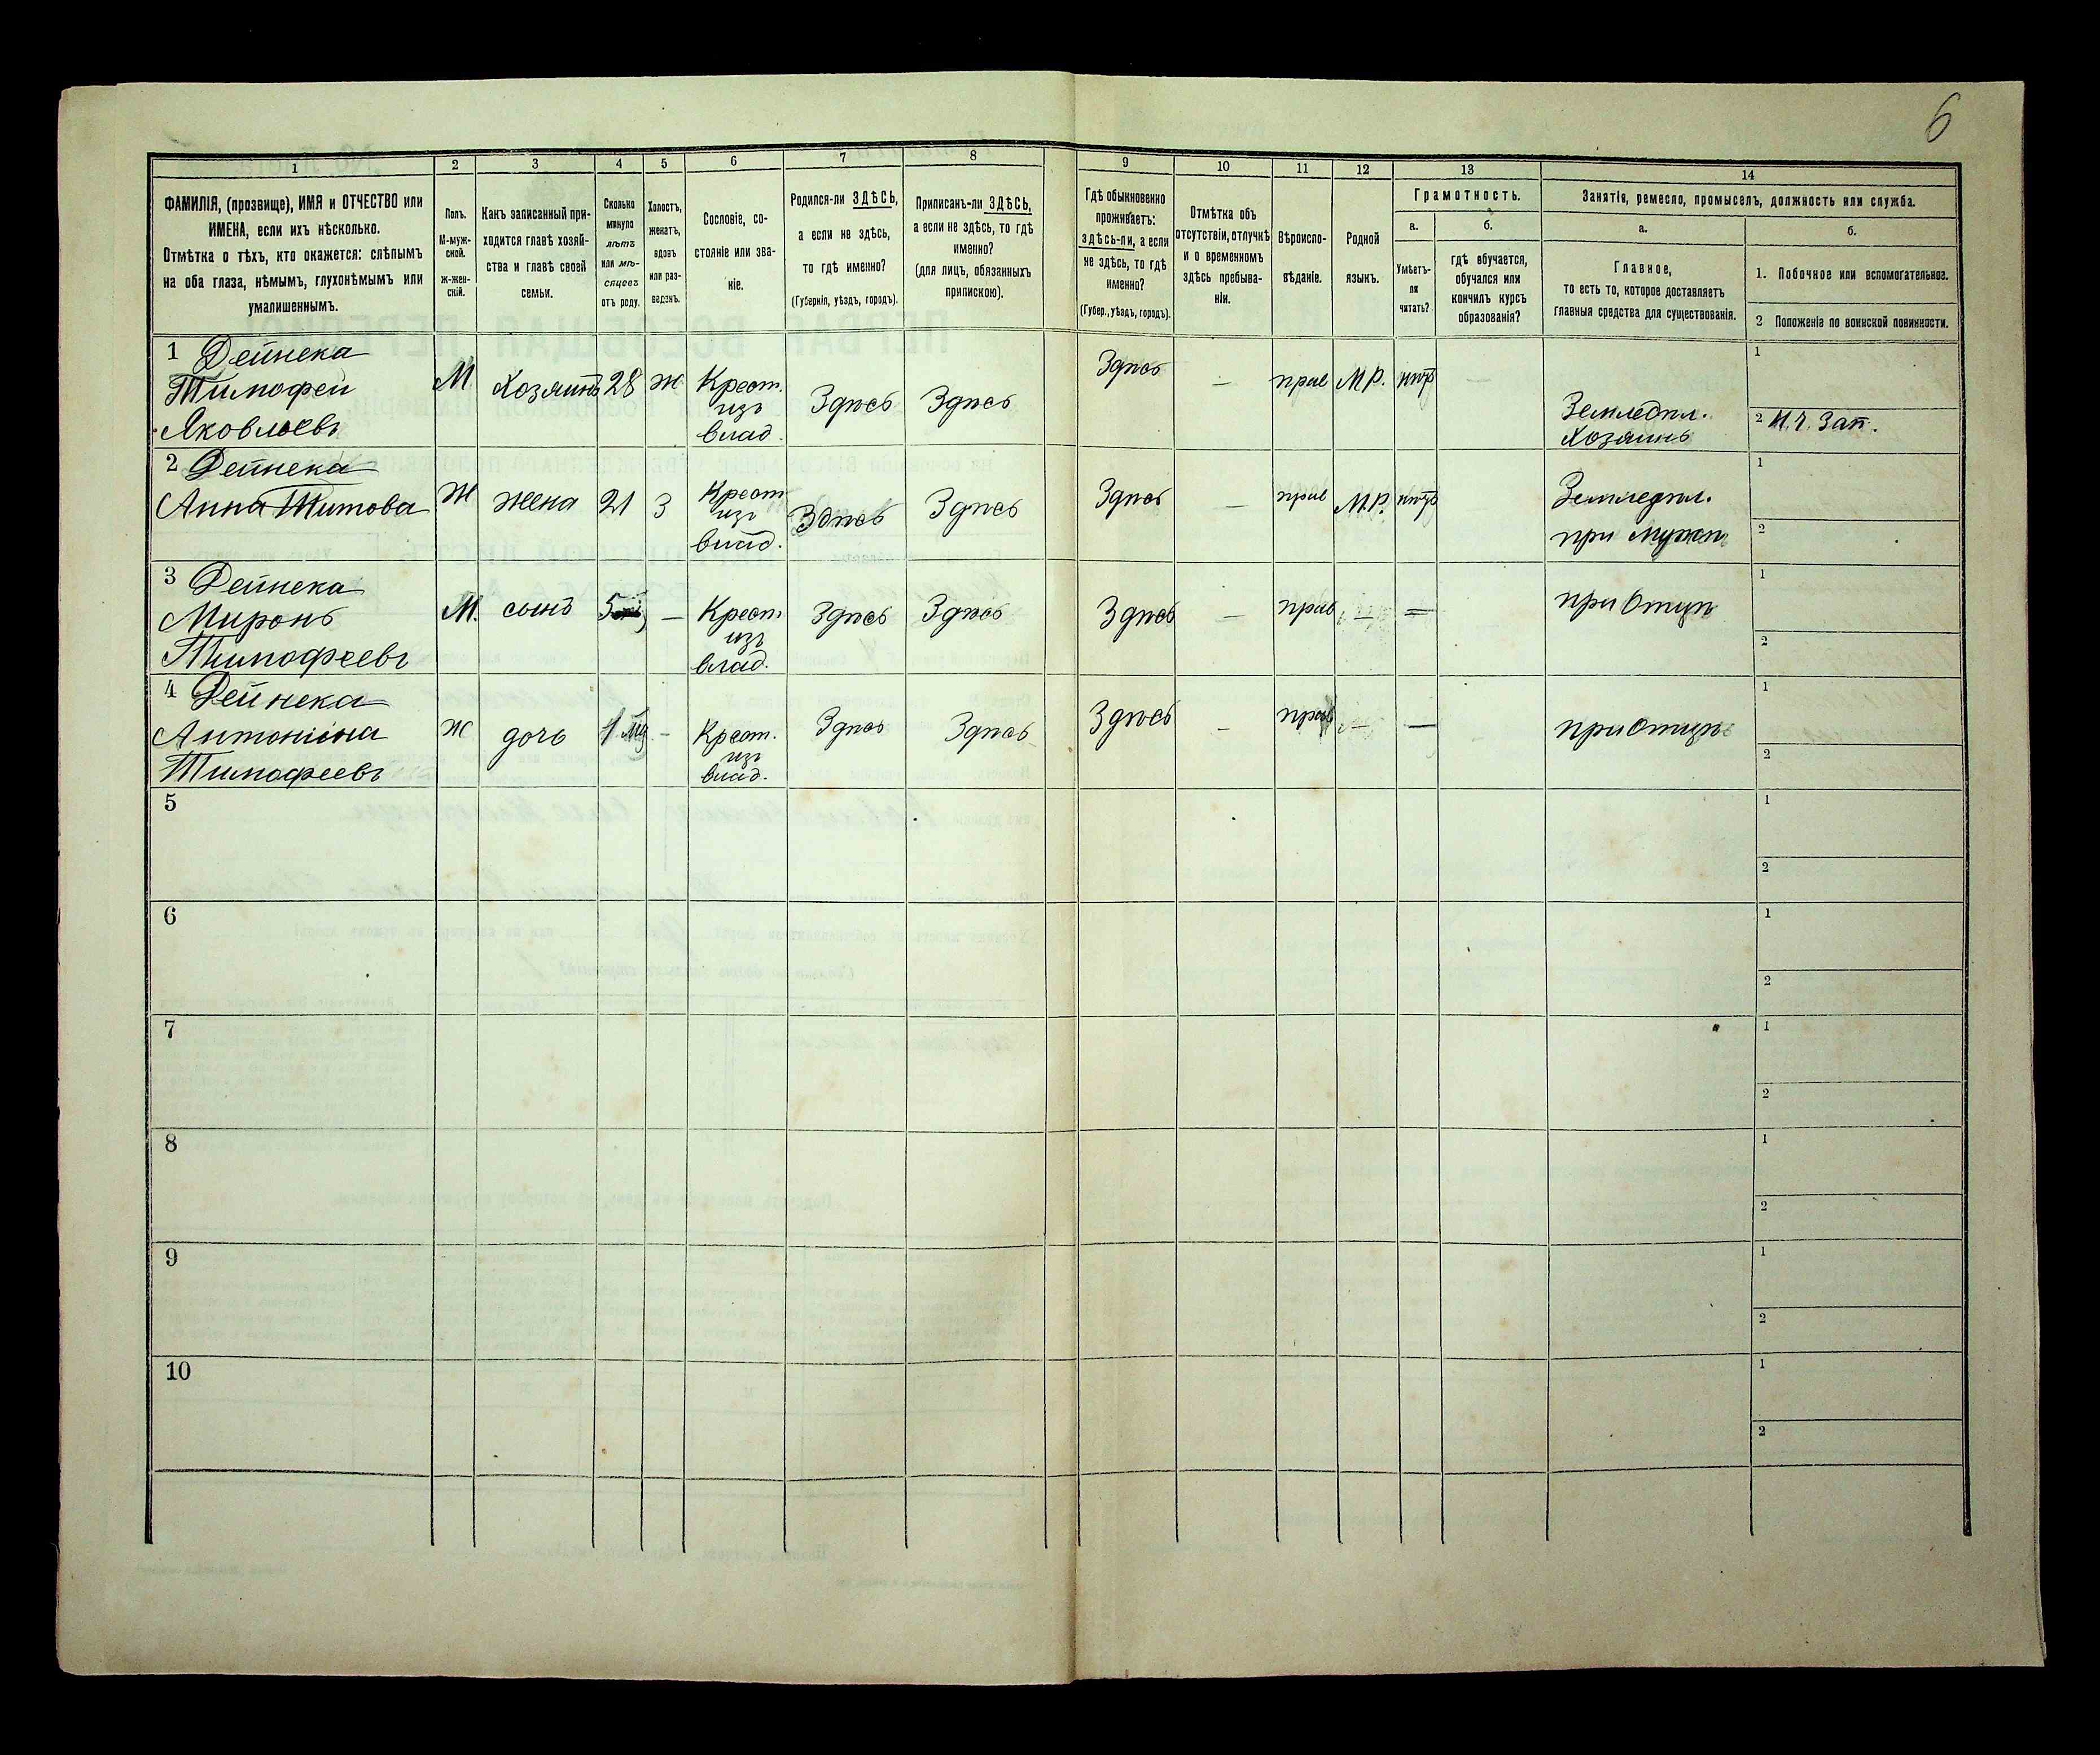 6
1 2 3 4 5 6 7 8 9 10 11 12 13 14
ФАМИЛІЯ, (прозвище), ИМЯ и ОТЧЕСТВО или
ИМЕНА, если ихъ нѣсколько.
Отмѣтка о тѣхъ, кто окажется: слѣпымъ
на оба глаза, нѣмымъ, глухонѣмымъ или
умалишеннымъ.
Полъ.
М-муж-
ской.
ж-жен-
скій.
Какъ записанный при-
ходится главѣ хозяй-
ства и главѣ своей
семьи.
Сколько
минуло
лѣтъ
или мѣ-
сяцевъ
отъ роду.
Холостъ,
женатъ,
вдовъ
или раз-
веденъ.
Сословіе, со-
стояніе или зва-
ніе.
Родился-ли ЗДѢСЬ,
а если не здѣсь,
то гдѣ именно?
(Губернія, уѣздъ, городъ).
Приписанъ-ли ЗДѢСЬ,
а если не здѣсь, то гдѣ
именно?
(для лицъ, обязанныхъ
припискою).
Гдѣ обыкновенно
проживаетъ:
здѣсь-ли, а если
не здѣсь, то гдѣ
именно?
(Губер., уѣздъ, городъ).
Отмѣтка объ
отсутствіи, отлучкѣ
и о временномъ
здѣсь пребыва-
ніи.
Вѣроиспо-
вѣданіе.
Родной
языкъ.
Грамотность.
а.
Умѣетъ-
ли
читать?
б.
гдѣ обучается,
обучался или
кончилъ курсъ
образованія?
Занятія, ремесло, промыселъ, должность или служба.
а.
Главное,
то есть то, которое доставляетъ
главныя средства для существованія.
б.
1. Побочное или вспомогательное.
2 Положеніе по воинской повинности.
1 Дейнека
Тимофей
Яковлевъ
М Хозяинъ 28 ж Крест.
изъ
влад.
Здѣсь Здѣсь Здѣсь — прав М.Р. нѣтъ —
Земледѣл.
Хозяинъ
1
2 Н.Ч. Зап.
2 Дейнека
Анна Титова
Ж жена 21 З Крест
изъ
влад.
Здѣсь Здѣсь Здѣсь — прав М.Р. нѣтъ
Земледѣл.
при мужѣ
1
2
3 Дейнека
Миронъ
Тимофеевъ
М. сынъ 5 — Крест.
изъ
влад.
Здѣсь Здѣсь Здѣсь — прав — =
при отцѣ
1
2
4 Дейнека
Антонина
Тимофеевъ
Ж дочь 1 - Крест.
изъ
влад.
Здѣсь Здѣсь Здѣсь — прав — —
при отцѣ
1
2
5
1
2
6
1
2
7
1
2
8
1
2
9
1
2
10
1
2